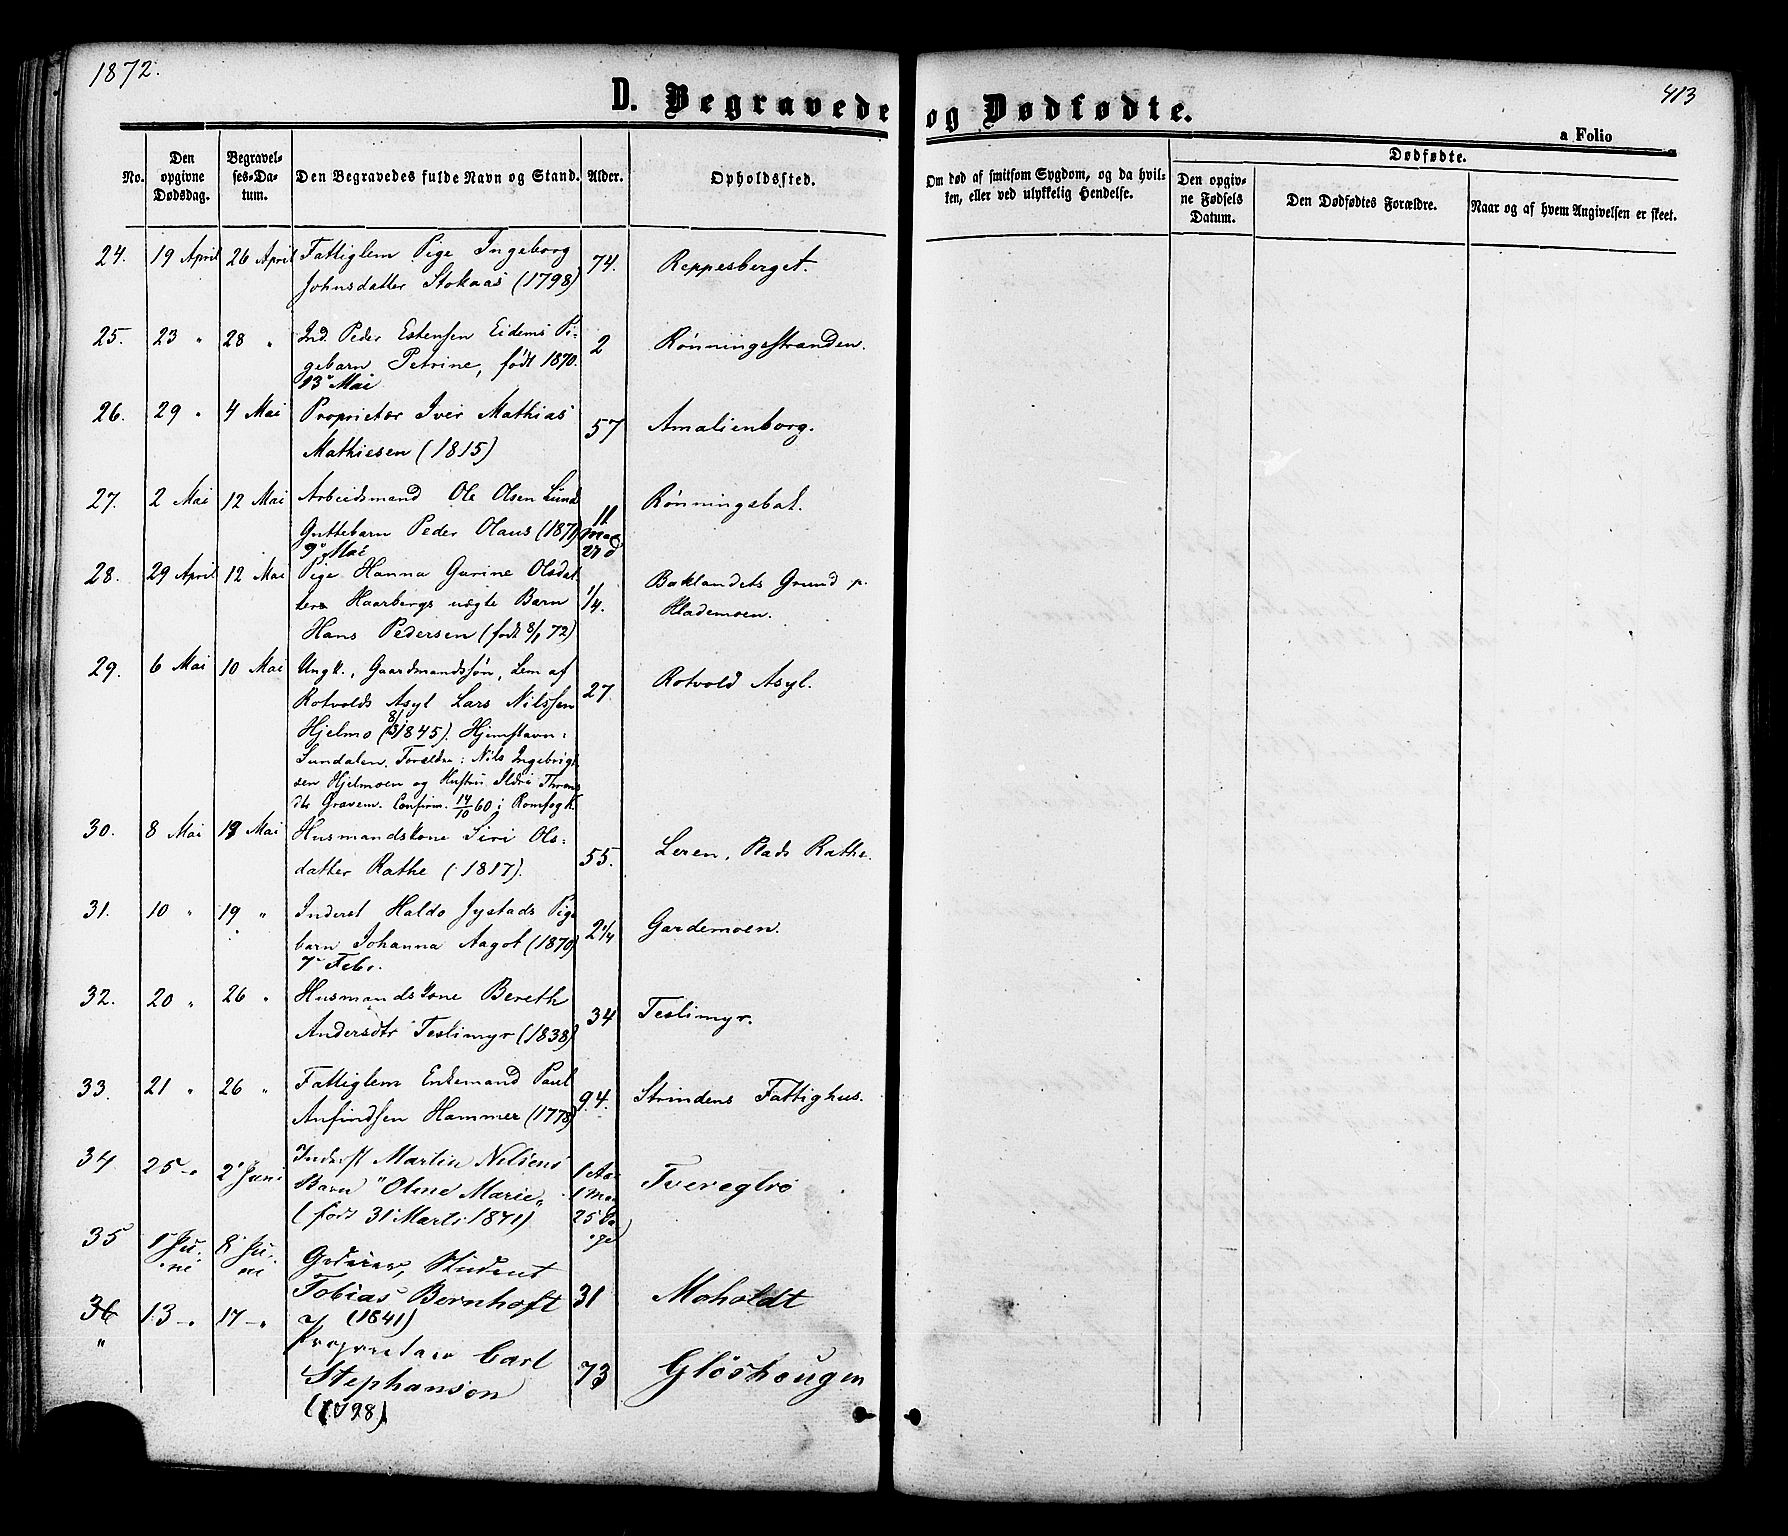 1872.
413
D. Begravede og Dødfødte.
a Folio
No.
Den opgivne Dødsdag.
Begravelses-Datum.
Den Begravedes fulde Navn og Stand.
Alder.
Opholdssted.
Om død af smitsom Sygdom, og da hvilken, eller ved ulykkelig Hendelse.
Dødfødte.
Den opgivne Fødsels Datum.
Den Dødfødtes Forældre.
Naar og af hvem Angivelsen er skeet.
24. 19 April 26 April Fattiglem Pige Ingeborg 74. Reppesberget.
Johnsdatter Stokaas (1798)
25. 23 " 28 " Ind. Peder Estensen Eidems Pi- 2 Rønningsstranden.
gebarn Petrine, født 1870.
13 Mai
26. 29 " 4 Mai Proprietær Iver Mathias 57 Amalienborg.
Mathiesen (1815)
27. 2 Mai 12 Mai Arbeidsmand Ole Olsen Lunds Rønningsbak.
Guttebarn Peder Olaus (1871) 11
9 Mai
28. 29 April 12 Mai Pige Hanna Gurine Olsdat- 1/4. Baklandets Grund p.
ters Haarbergs uægte Barn Hlademoen.
Hans Pedersen (født 8/1 72)
29. 6 Mai 10 Mai Ungk., Gaardmandssøn, Lem af 27. Rotvold Asyl.
Rotvolds Asyl Lars Nilssen
Hjelmo (8/3 1845). Hjemstavn:
Sundalen. Forældre: Nils Ingebrigt-
sen Hjelmoen og Hustru Ildri Thrands
dtr Gravem. Confirm. 14/10 60 i Romfog K.
30. 8 Mai 18 Mai Husmandskone Siri Ols- 55. Leren, Plads Rathe.
datter Rathe (1817).
31. 10 " 19 " Inderst Haldo Jystads Pige 2 1/4 Gardemoen.
barn Johanna Aagot (1870)
7 Febr.
32. 20 " 26 " Husmandskone Bereth 34 Teslimyr.
Andersdtr Teslimyr (1838)
33. 21 " 26 " Fattiglem Enkemand Paul 94. Strindens Fattighus.
Anfindsen Hammer (1778)
34 25 " 2 Juni Inderst Martin Nilsens 1 Aar Tveregtrø
Barn "Oline Marie" 1 Maa
(født 31 Marts 1871) 25 Da-
ge)
35 1 Ju- 8 Ju- Student
ni ni
Tobias Bernhoft 31 Moholdt
(1841)
36 13 " 17 " Proprietær Carl
Stephanson 73 Gløshaugen
(1798)